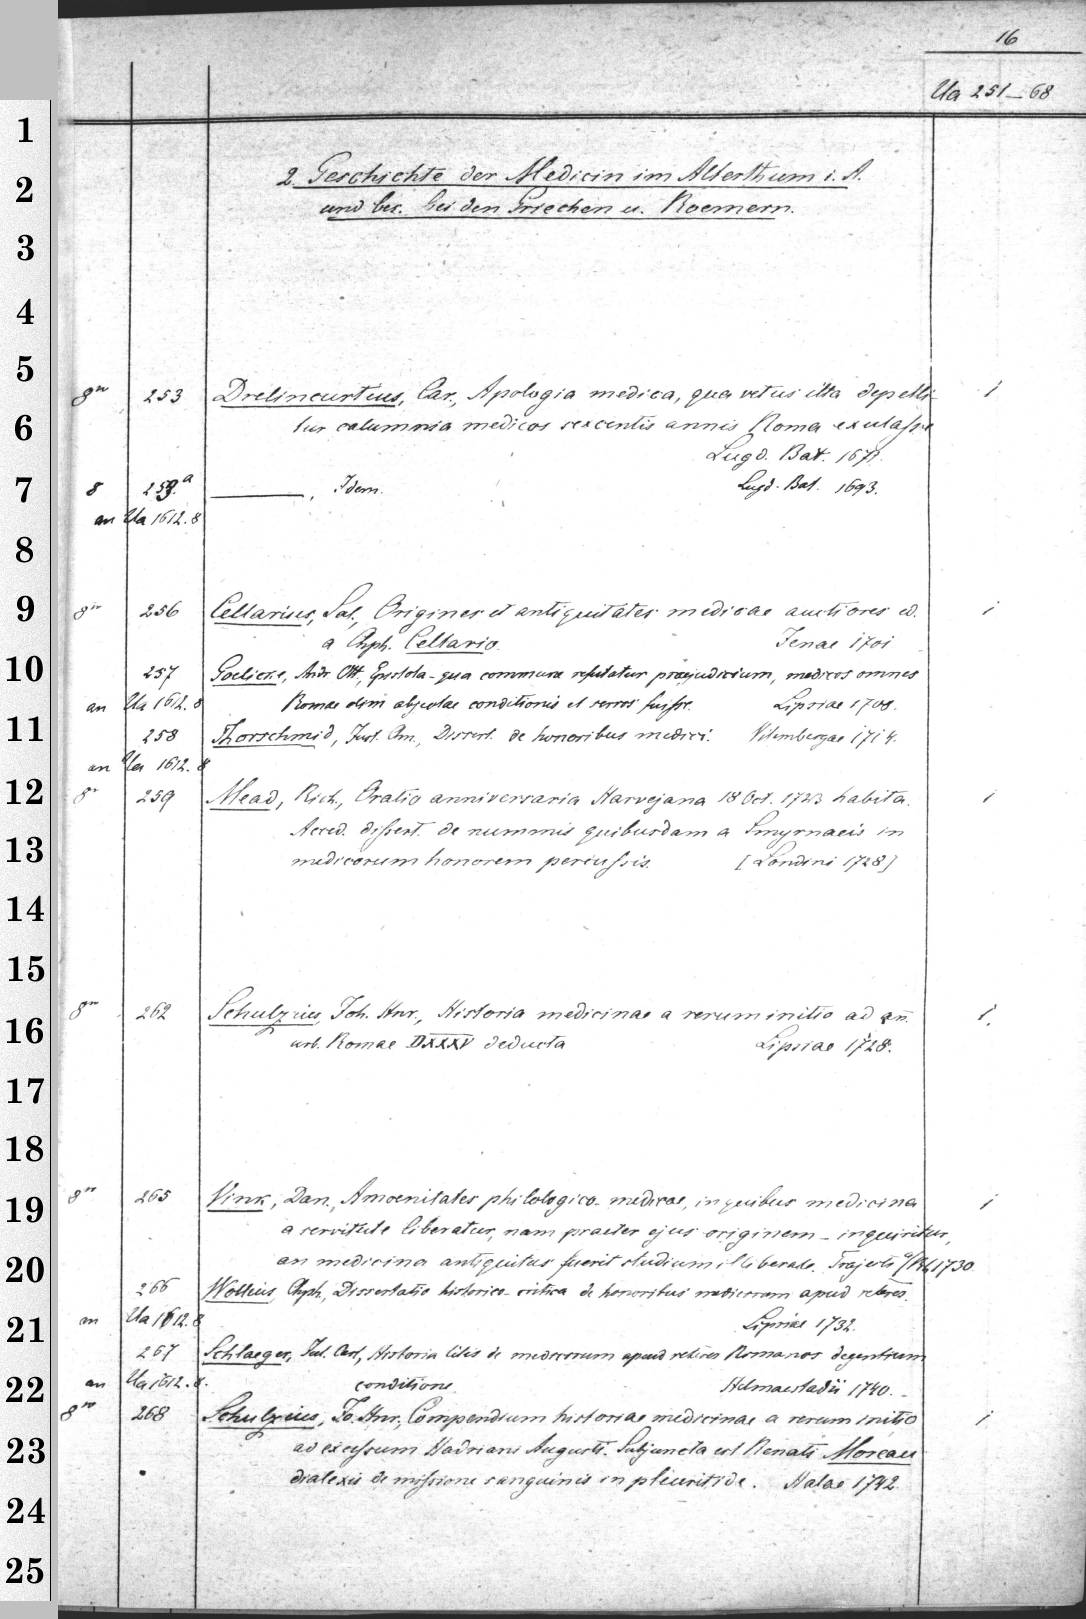 16
Ua 251-68
2. Geschichte der Medicin im Alterthum i. A.
und bes. bei den Griechen u. Roemern.
8vo 253 Drelincurtius, Car., Apologia medica, qua vetus illa depelli- 1
tur calumnia medicos sexcentis annis Roma exulasse
Lugd. Bat. 1671.
8 253.a ———, Idem. Lugd. Bat. 1693.
an Ua 1612.8
8vo 256 Cellarius, Sal., Origines et antiquitates medicae auctiores ed. 1
a Chph. Cellario. Jenae 1701
257 Goelicke, Andr. Ott., Epistola - qua commune refutatur praejudicium, medicos omnes
an Ua 1612.8 Romae olim abjectae conditionis et servos fuisse. Lipsiae 1708.
258 Thorschmid, Just. Chn., Dissert. de honoribus medici. Vitembergae 1714.
an Ua 1612.8
8o 259 Mead, Rich., Oratio anniversaria Harvejana 18 Oct. 1723 habita. 1
Acced. dissert. de nummis quibusdam a Smyrnaeis in
medicorum honorem percussis. [Londini 1728]
8vo 262 Schulzius, Joh. Hnr., Historia medicinae a rerum initio ad an. 1.
urb. Romae DXXXV deducta Lipsiae 1728.
8vo 265 Vink, Dan., Amoenitates philologico-medicae, in quibus medicina 1
a servitute liberatur, nam praeter ejus originem - inquiritur,
an medicina antiquitus fuerit studium illiberale. Trajecti a/Rh. 1730
266 Wollius, Chph., Dissertatio historico-critica de honoribus medicorum apud veteres.
an Ua 1612.8 Lipsiae 1732.
267 Schlaeger, Jul. Carl, Historia litis de medicorum apud veteres Romanos degentium
an Ua 1612.8. conditione. Helmaestadii 1740.
8vo 268 Schulzius, Jo. Hnr., Compendium historiae medicinae a rerum initio 1
ad excessum Hadriani Augusti. Subjuncta est Renati Moreau
dialexis de missione sanguinis in pleuritide. Halae 1742.
1
2
3
4
5
6
7
8
9
10
11
12
13
14
15
16
17
18
19
20
21
22
23
24
25